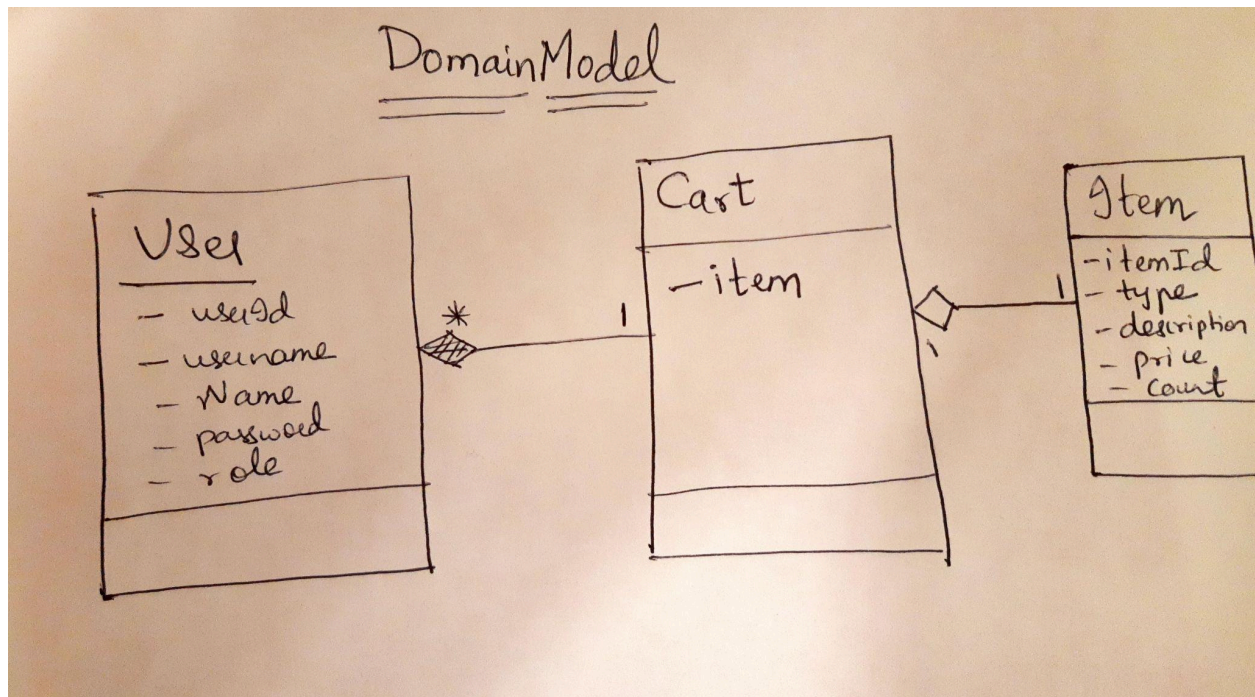 DomainModel
User
- userId
- username
- Name
- password
- role
*
1
Cart
- item
1
1
Item
- itemId
- type
- description
- price
- count